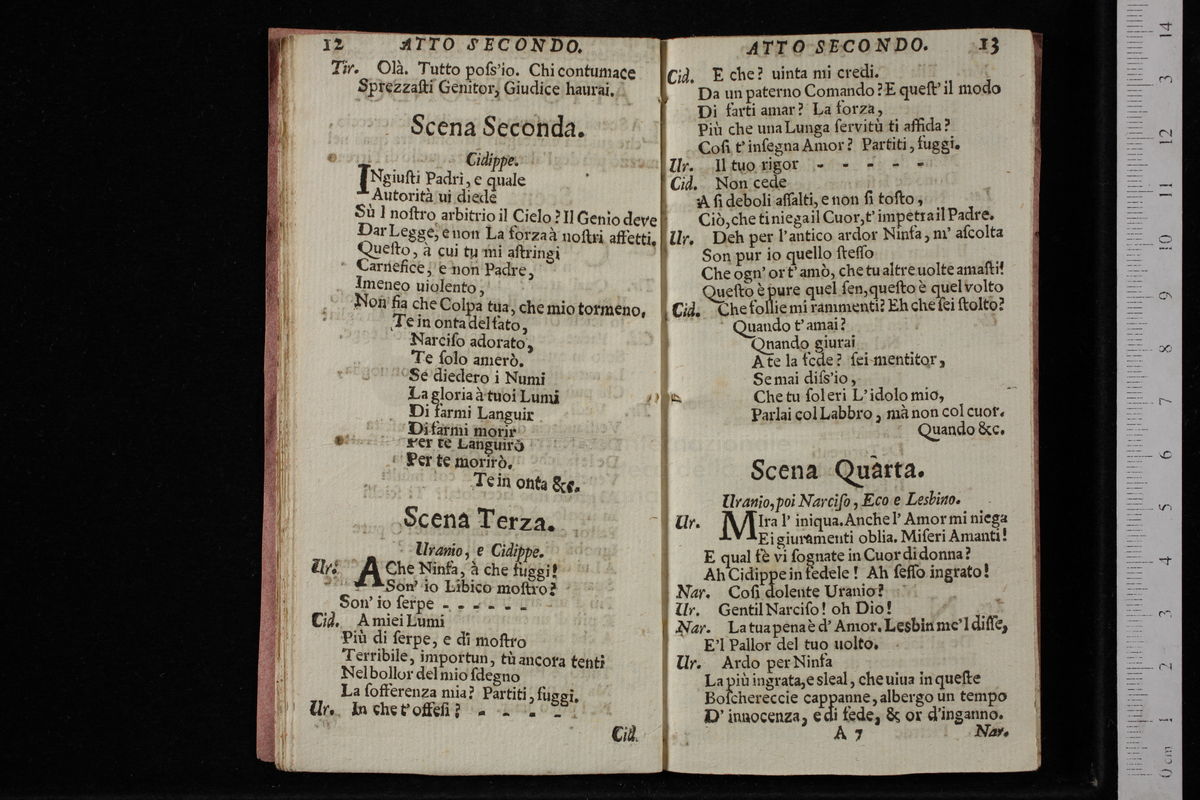 12 ATTO SECONDO.
Tir. Olà. Tutto poſs'io. Chi contumace
Sprezzaſti Genitor, Giudice haurai.
Scena Seconda.
Cidippe.
INgiuſti Padri, e quale
Autorità ui diede
Sù l noſtro arbitrio il Cielo? Il Genio deve
Dar Legge, e non La forza à noſtri affetti.
Queſto, à cui tu mi aſtringi
Carnefice, e non Padre,
Imeneo uiolento,
Non fia che Colpa tua, che mio tormeno,
Te in onta del fato,
Narciſo adorato,
Te ſolo amerò.
Se diedero i Numi
La gloria à tuoi Lumi
Di farmi Languir
Di farmi morir
Per te Languirò
Per te morirò.
Te in onta &c.
Scena Terza.
Uranio, e Cidippe.
Ur. A Che Ninfa, à che fuggi!
Son' io Libico moſtro?
Son' io ſerpe - - - - - -
Cid. A miei Lumi
Più di ſerpe, e di moſtro
Terribile, importun, tù ancora tenti
Nel bollor del mio ſdegno
La ſofferenza mia? Partiti, fuggi.
Ur. In che t' offeſi? - - - -
Cid.
ATTO SECONDO. 13
Cid. E che? uinta mi credi.
Da un paterno Comando? E queſt' il modo
Di farti amar? La forza,
Più che una Lunga ſervitù ti affida?
Coſi t' inſegna Amor? Partiti, fuggi.
Ur. Il tuo rigor - - - - -
Cid. Non cede
A ſi deboli aſſalti, e non ſi toſto,
Ciò, che ti niega il Cuor, t' impetra il Padre.
Ur. Deh per l' antico ardor Ninfa, m' aſcolta
Son pur io quello ſteſſo
Che ogn' or t' amò, che tu altre uolte amaſti!
Queſto è pure quel ſen, queſto è quel volto
Cid. Che follie mi rammenti? Eh che ſei ſtolto?
Quando t' amai?
Qnando giurai
A te la fede? ſei mentitor,
Se mai diſs'io,
Che tu ſol eri L' idolo mio,
Parlai col Labbro, mà non col cuor.
Quando &c.
Scena Quarta.
Uranio, poi Narciſo, Eco e Lesbino.
Ur. MIra l' iniqua. Anche l' Amor mi niega
E i giuramenti oblia. Miſeri Amanti!
E qual fè vi ſognate in Cuor di donna?
Ah Cidippe in fedele! Ah ſeſſo ingrato!
Nar. Coſi dolente Uranio?
Ur. Gentil Narciſo! oh Dio!
Nar. La tua pena è d' Amor. Lesbin me'l diſſe,
E'l Pallor del tuo uolto.
Ur. Ardo per Ninfa
La più ingrata, e sleal, che uiua in queſte
Boſchereccie cappanne, albergo un tempo
D' innocenza, e di fede, & or d'inganno.
A 7 Nar.